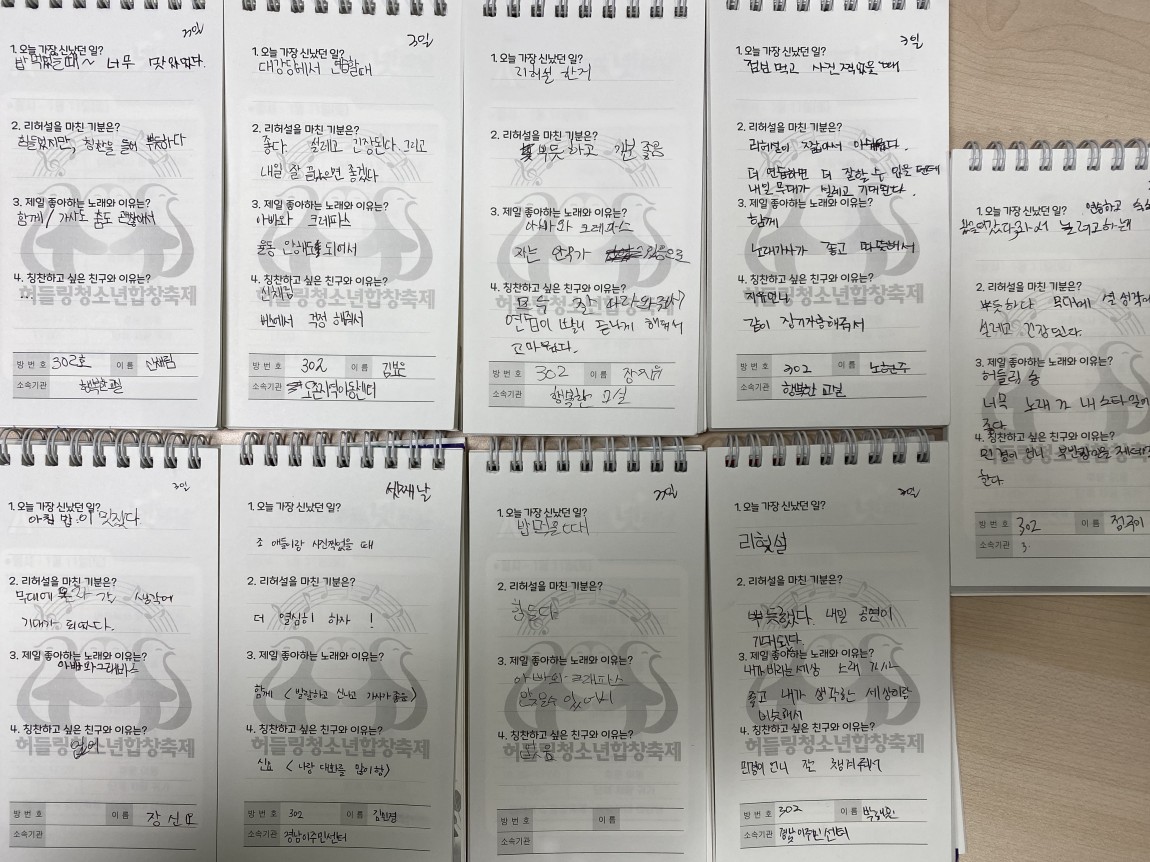 3일
1. 오늘 가장 신났던 일?
밥 먹었을때~ 너무 맛있었다.
2. 리허설을 마친 기분은?
힘들었지만, 칭찬을 들어 뿌듯하다
3. 제일 좋아하는 노래와 이유는?
함께/가사도 춤도 괜찮아서
4. 칭찬하고 싶은 친구와 이유는?
...
허들링청소년합창축제
방 번 호 302호 이 름 신채림
소속기관 행복한교실
3일
1. 오늘 가장 신났던 일?
대강당에서 연습할때
2. 리허설을 마친 기분은?
좋다 설레고 긴장된다. 그리고
내일 잘 끝났으면 좋겠다
3. 제일 좋아하는 노래와 이유는?
아빠와 크레파스
율동 안해도 되어서
4. 칭찬하고 싶은 친구와 이유는?
신채림
허들링청소년합창축제
옆에서 걱정 해줘서
방 번 호 302 이 름
소속기관
1. 오늘 가장 신났던 일?
리허설 한거
2. 리허설을 마친 기분은?
뿌듯하고 기분 좋음
3. 제일 좋아하는 노래와 이유는?
아빠와 크레파스
4. 칭찬하고 싶은 친구와 이유는?
모두 잘 따라와줘서
허들링청소년합창축제
연습이 빨리 끝나게 해줘서
고마웠다.
방 번 호 302 이 름 장지유
소속기관 행복한 교실
3일
1. 오늘 가장 신났던 일?
점심먹고 사진 찍었을 때
2. 리허설을 마친 기분은?
리허설이 짧아서 아쉬웠다.
더 연습하면 더 잘할 수 있을 텐데
내일 무대가 설레고 기대된다.
3. 제일 좋아하는 노래와 이유는?
함께
노래가사가 좋고 따뜻해서
4. 칭찬하고 싶은 친구와 이유는?
지유언니
허들링청소년합창축제
같이 장기자랑해줘서
방 번 호 302 이 름 노현주
소속기관 행복한 교실
1. 오늘 가장 신났던 일?
2. 리허설을 마친 기분은?
뿌듯하다 무대에 설 생각에
설레고 긴장된다.
3. 제일 좋아하는 노래와 이유는?
허들링 송
너무 노래가 내 스타일이
좋다
4. 칭찬하고 싶은 친구와 이유는?
한다
방 번 호 302 이 름
소속기관
3일
1. 오늘 가장 신났던 일?
아침 밥이 맛있다
2. 리허설을 마친 기분은?
무대에 올라 간 생각에
기대가 되었다.
3. 제일 좋아하는 노래와 이유는?
아빠와그래파스
4. 칭찬하고 싶은 친구와 이유는?
없어
허들링청소년합창축제
방 번 호 이 름
소속기관
셋째날
1. 오늘 가장 신났던 일?
조 애들이랑 사진찍었을 때
2. 리허설을 마친 기분은?
더 열심히 하자 !
3. 제일 좋아하는 노래와 이유는?
함께 〈발랄하고 신나고 가사가 좋음〉
4. 칭찬하고 싶은 친구와 이유는?
허들링청소년합창축제
〈나랑 대화를 많이 함〉
방 번 호 302 이 름 김민경
소속기관 경남이주민센터
3일
1. 오늘 가장 신났던 일?
밥먹을때
2. 리허설을 마친 기분은?
힘들다
3. 제일 좋아하는 노래와 이유는?
아빠와 크레파스
4. 칭찬하고 싶은 친구와 이유는?
없음
허들링청소년합창축제
방 번 호 이 름
소속기관
3일
1. 오늘 가장 신났던 일?
리헛설
2. 리허설을 마친 기분은?
뿌듯했다. 내일 공연이
기대된다.
3. 제일 좋아하는 노래와 이유는?
내가 바라는 세상 노래 가사
좋고 내가 생각한 세상이랑
비슷해서
4. 칭찬하고 싶은 친구와 이유는?
허들링청소년합창축제
민경이 언니 잘 챙겨줘서
방 번 호 302 이 름
소속기관 경남이주민센터